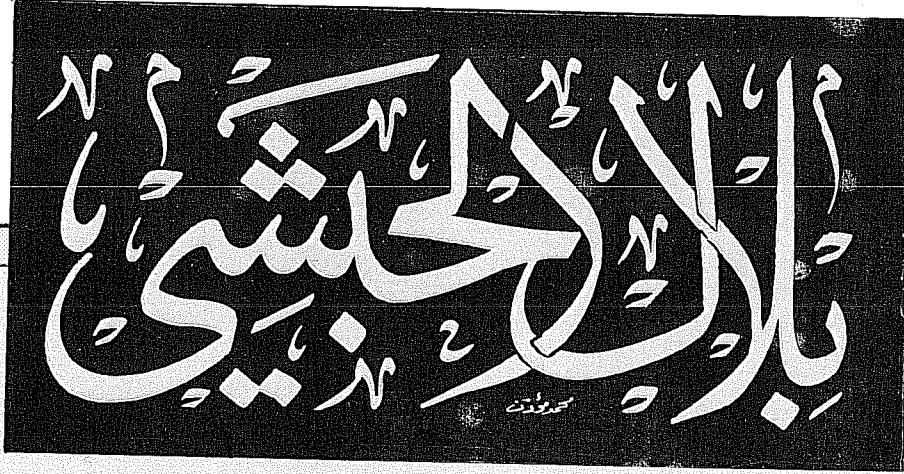 بلال الحبشي